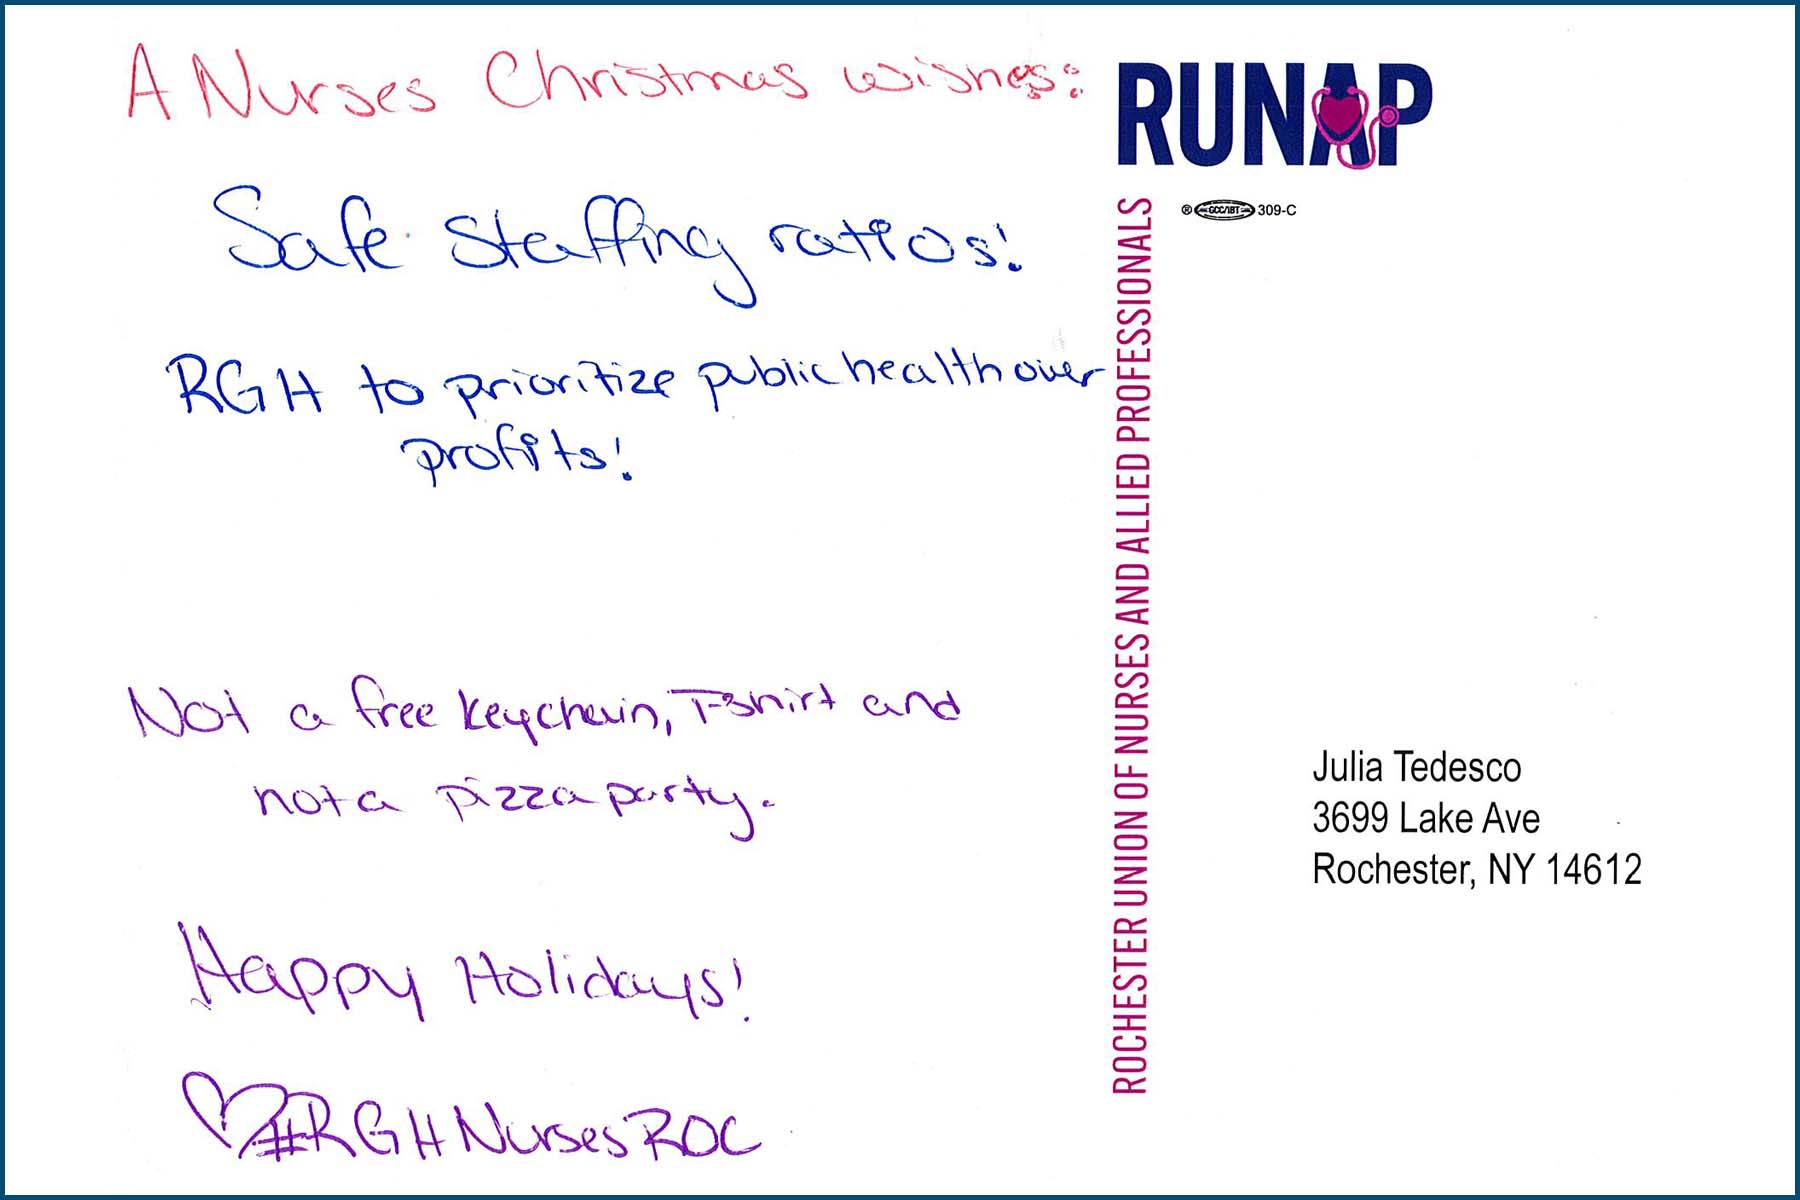 A Nurses Christmas wishes:
Safe staffing ratios!
RGH to prioritize public health over
profits!
Not a free keychain, T-shirt and
not a pizza party.
Happy Holidays!
♡#RGHNursesROC
RUNAP
® GCC/IBT 309-C
ROCHESTER UNION OF NURSES AND ALLIED PROFESSIONALS
Julia Tedesco
3699 Lake Ave
Rochester, NY 14612